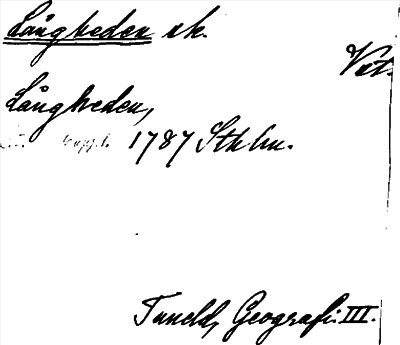 Långheden sk.
Vist.
Långheden,
1787 Sthlm.
Tuneld, Geografi III.